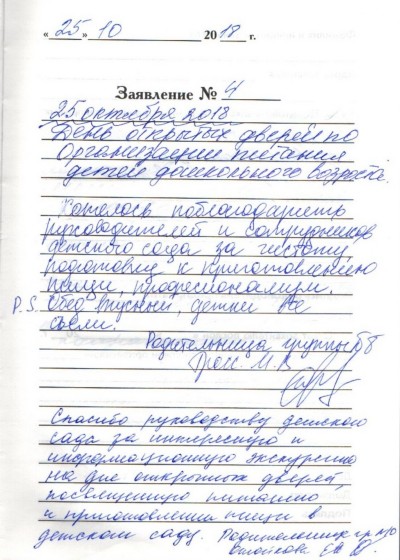 «25» 10 2018 г.
Заявление № 4
25 октября 2018
День открытых дверей по
Организации питания
детей дошкольного возраста.
Хотелось поблагодарить
руководителей и сотрудников
детского сада за чистоту,
подготовку к приготовлению
пищи, професионализм.
P.S. Обед вкусный, детки все
съели.
Родительница группы
Спасибо руководству детского
сада за интересную и
информационную экскурсию
на дне открытых дверей,
посвещенную питанию
и приготовлении пищи в
детском саду. Родительница гр.